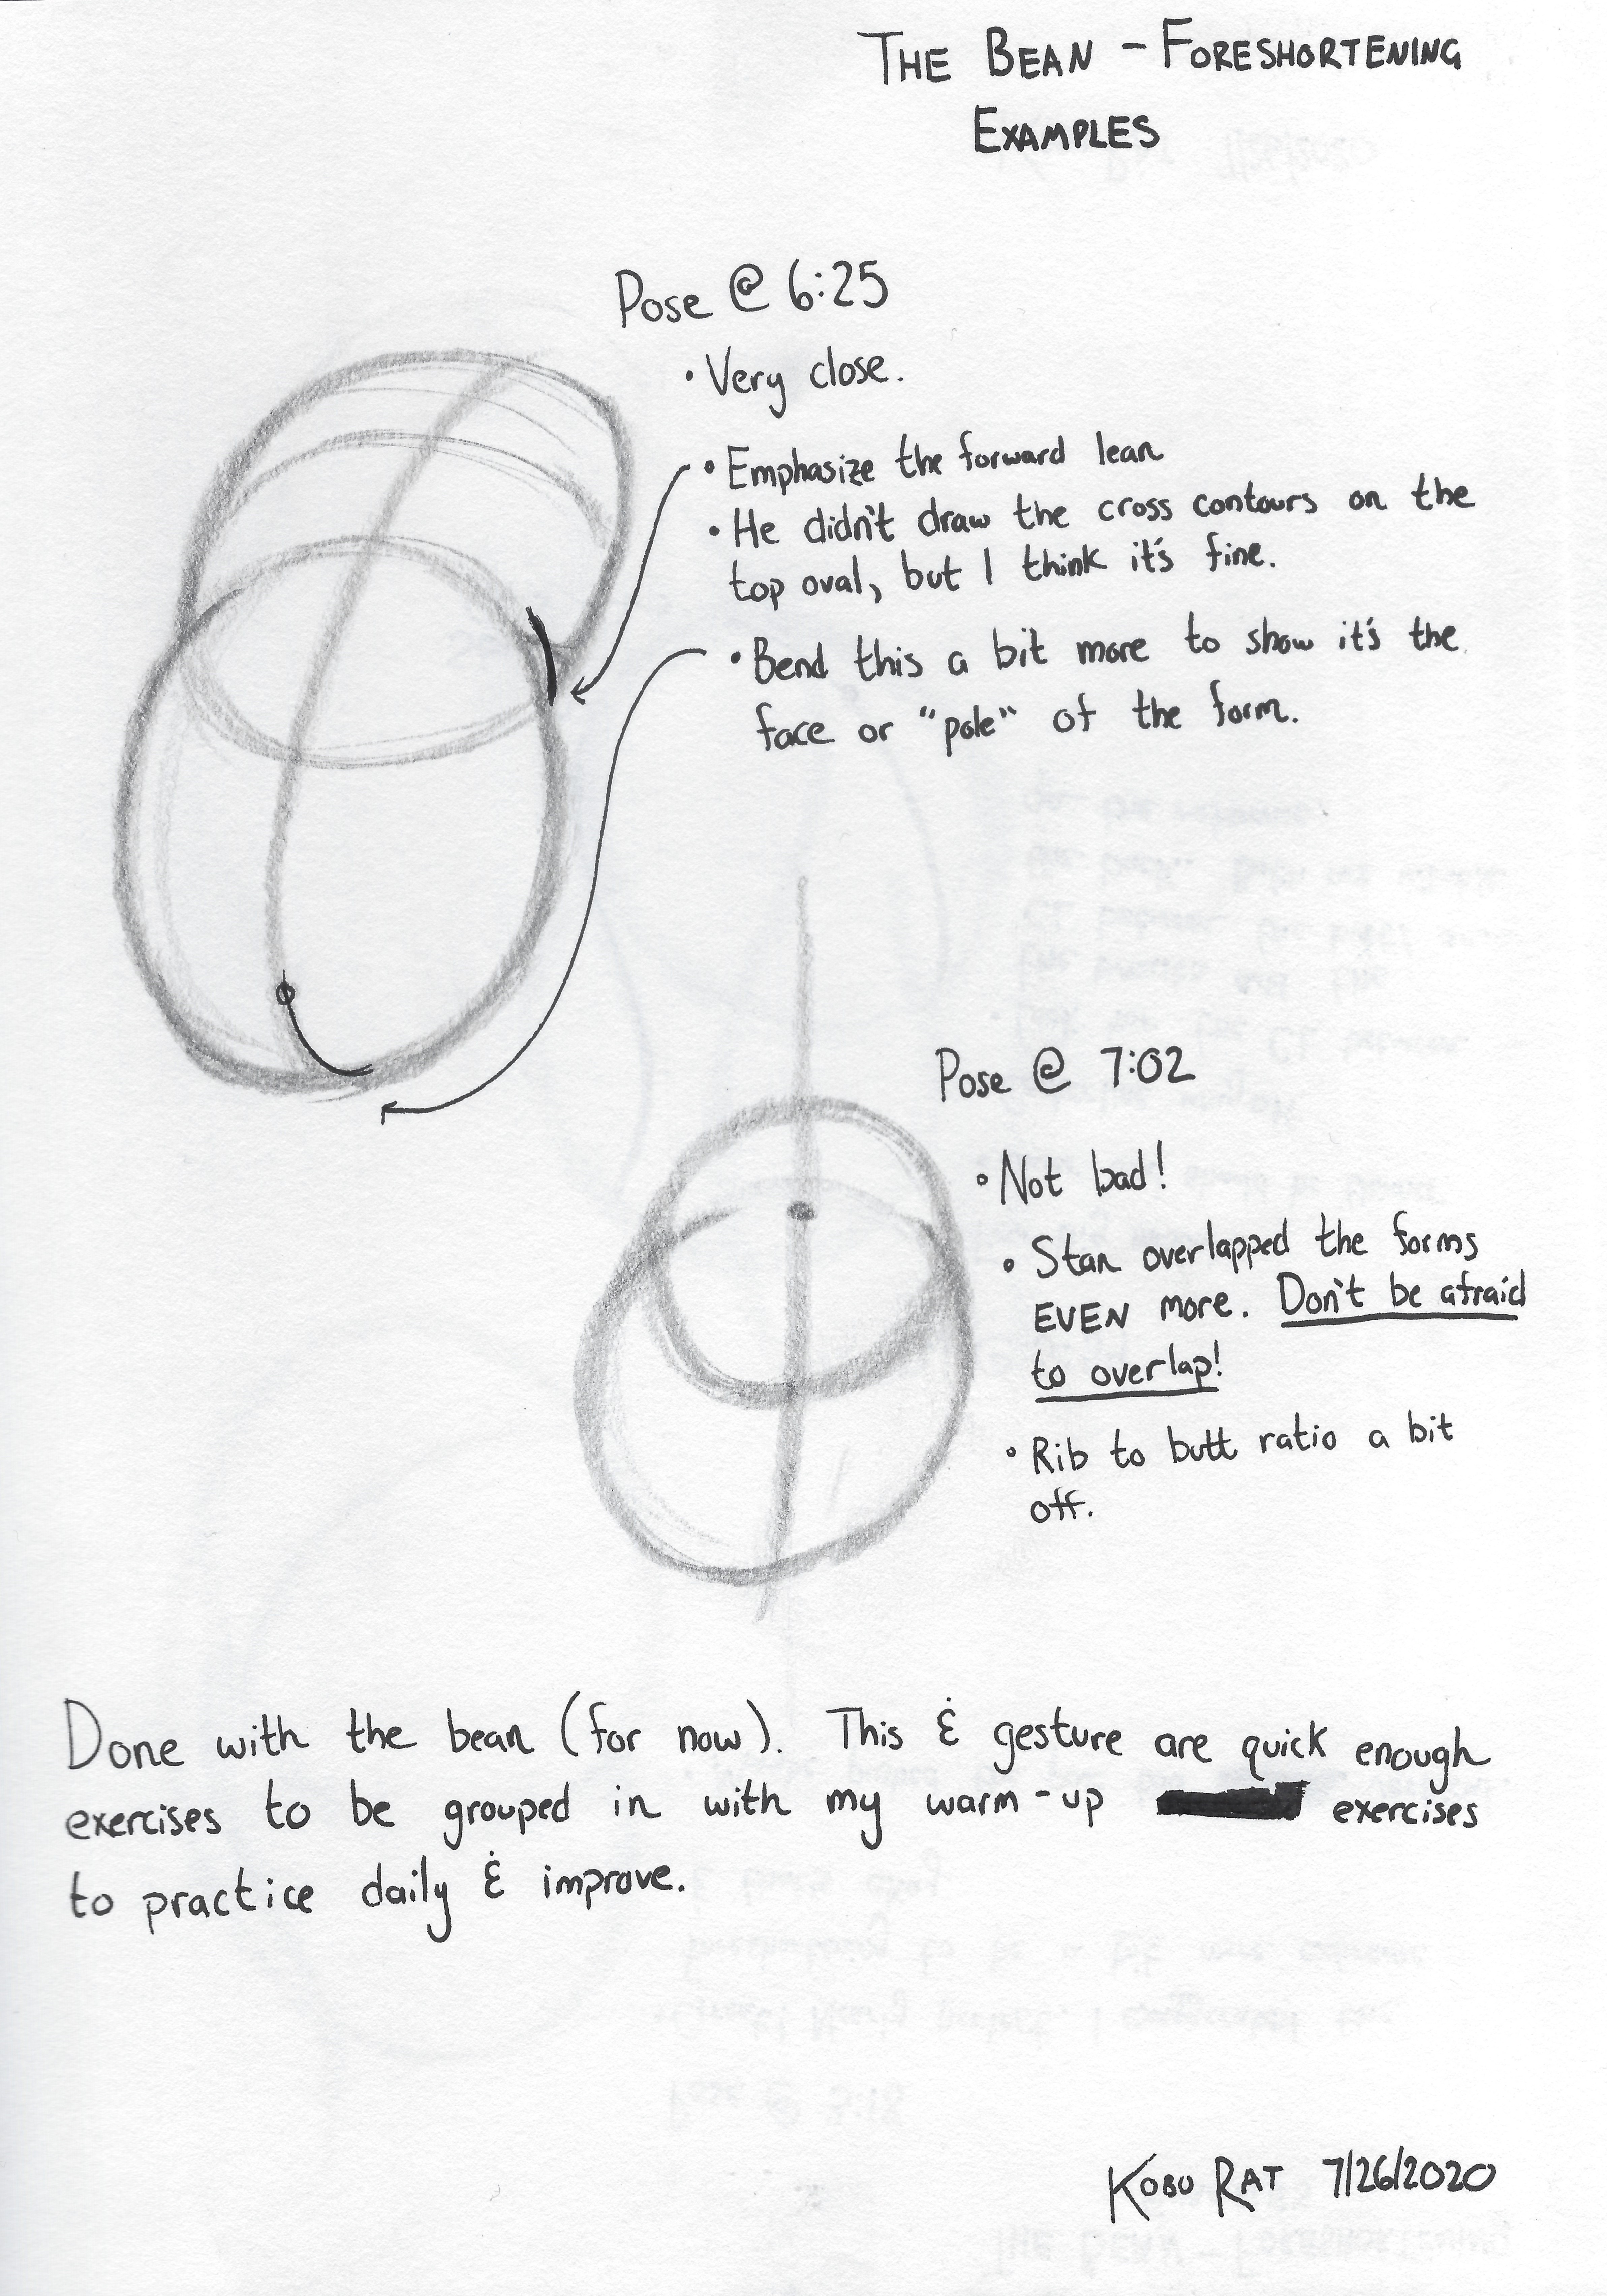 THE BEAN - FORESHORTENING
EXAMPLES
Pose @ 6:25
• Very close.
• Emphasize the forward lean
• He didn't draw the cross contours on the
top oval, but I think it's fine.
• Bend this a bit more to show it's the
face or "pole" of the form.
Pose @ 7:02
• Not bad!
• Stan overlapped the forms
EVEN more. Don't be afraid
to overlap!
• Rib to butt ratio a bit
off.
Done with the bean (for now). This & gesture are quick enough
exercises to be grouped in with my warm-up exercises
to practice daily & improve.
KOBU RAT 7/26/2020